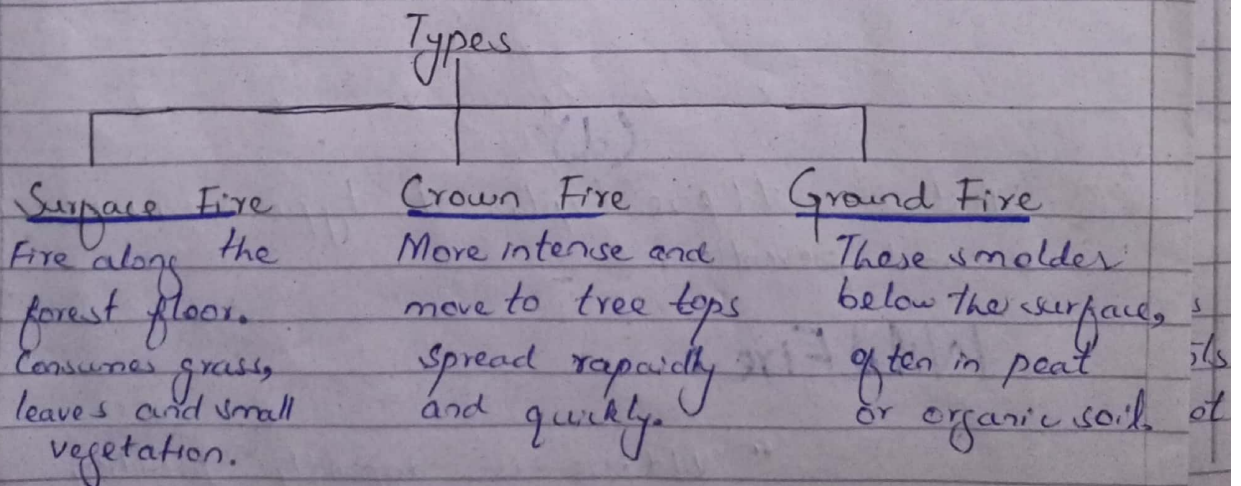 Types
Surface Fire
Fire along the
forest floor.
Consumes grass,
leaves and small
vegetation.
Crown Fire
More intense and
move to tree tops
spread rapaidly
and quickly.
Ground Fire
These smolder
below the surface,
often in peat
or organic soil.
s
ils
ot